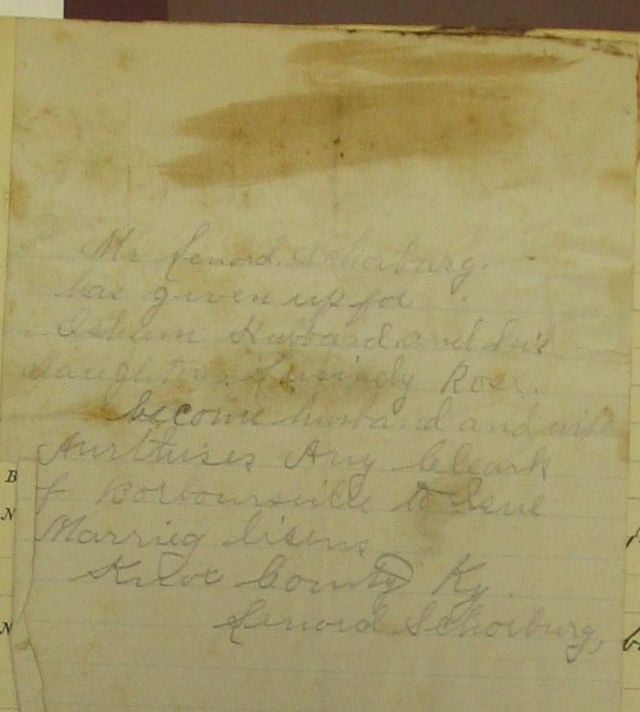 Mr Lenord. Schorburg.
has given up for
Isham Hubbard and his
daughter. Rose.
become husband and wife
Aurthises Any Cleark
f Borboursville to Isue
Marrieg licens
Knox County Ky.
Lenord Schorburg,
B
N
N